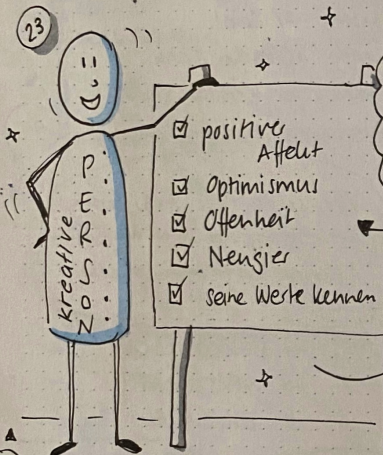 23
kreative
PERSON
positiver
Affekt
Optimismus
Offenheit
Neugier
seine Werte kennen